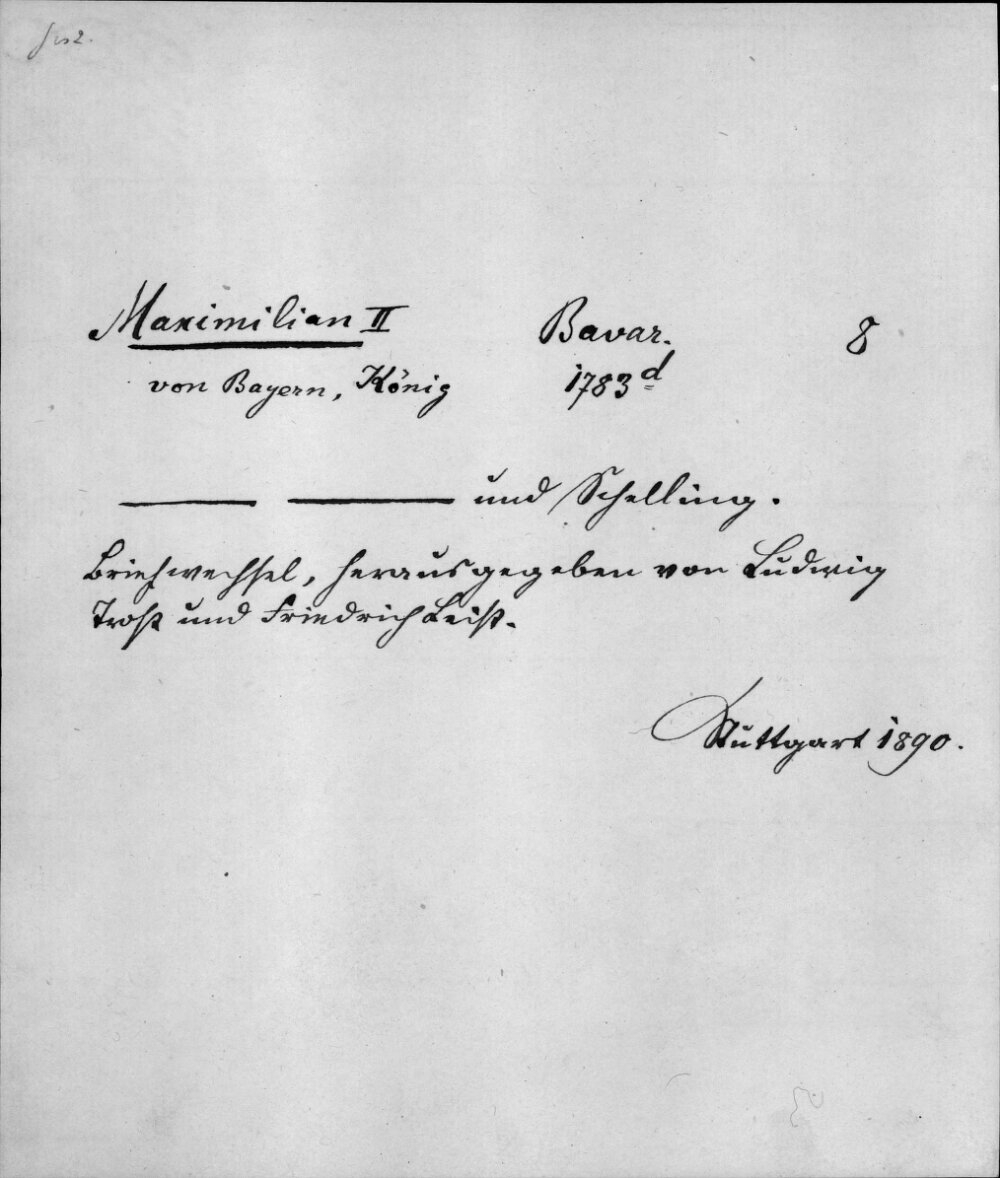 Maximilian II Bavar. 8
von Bayern, König 1783 d
——— ——— und Schelling.
Briefwechsel, herausgegeben von Ludwig
Trost und Friedrich Leist.
Stuttgart 1890.